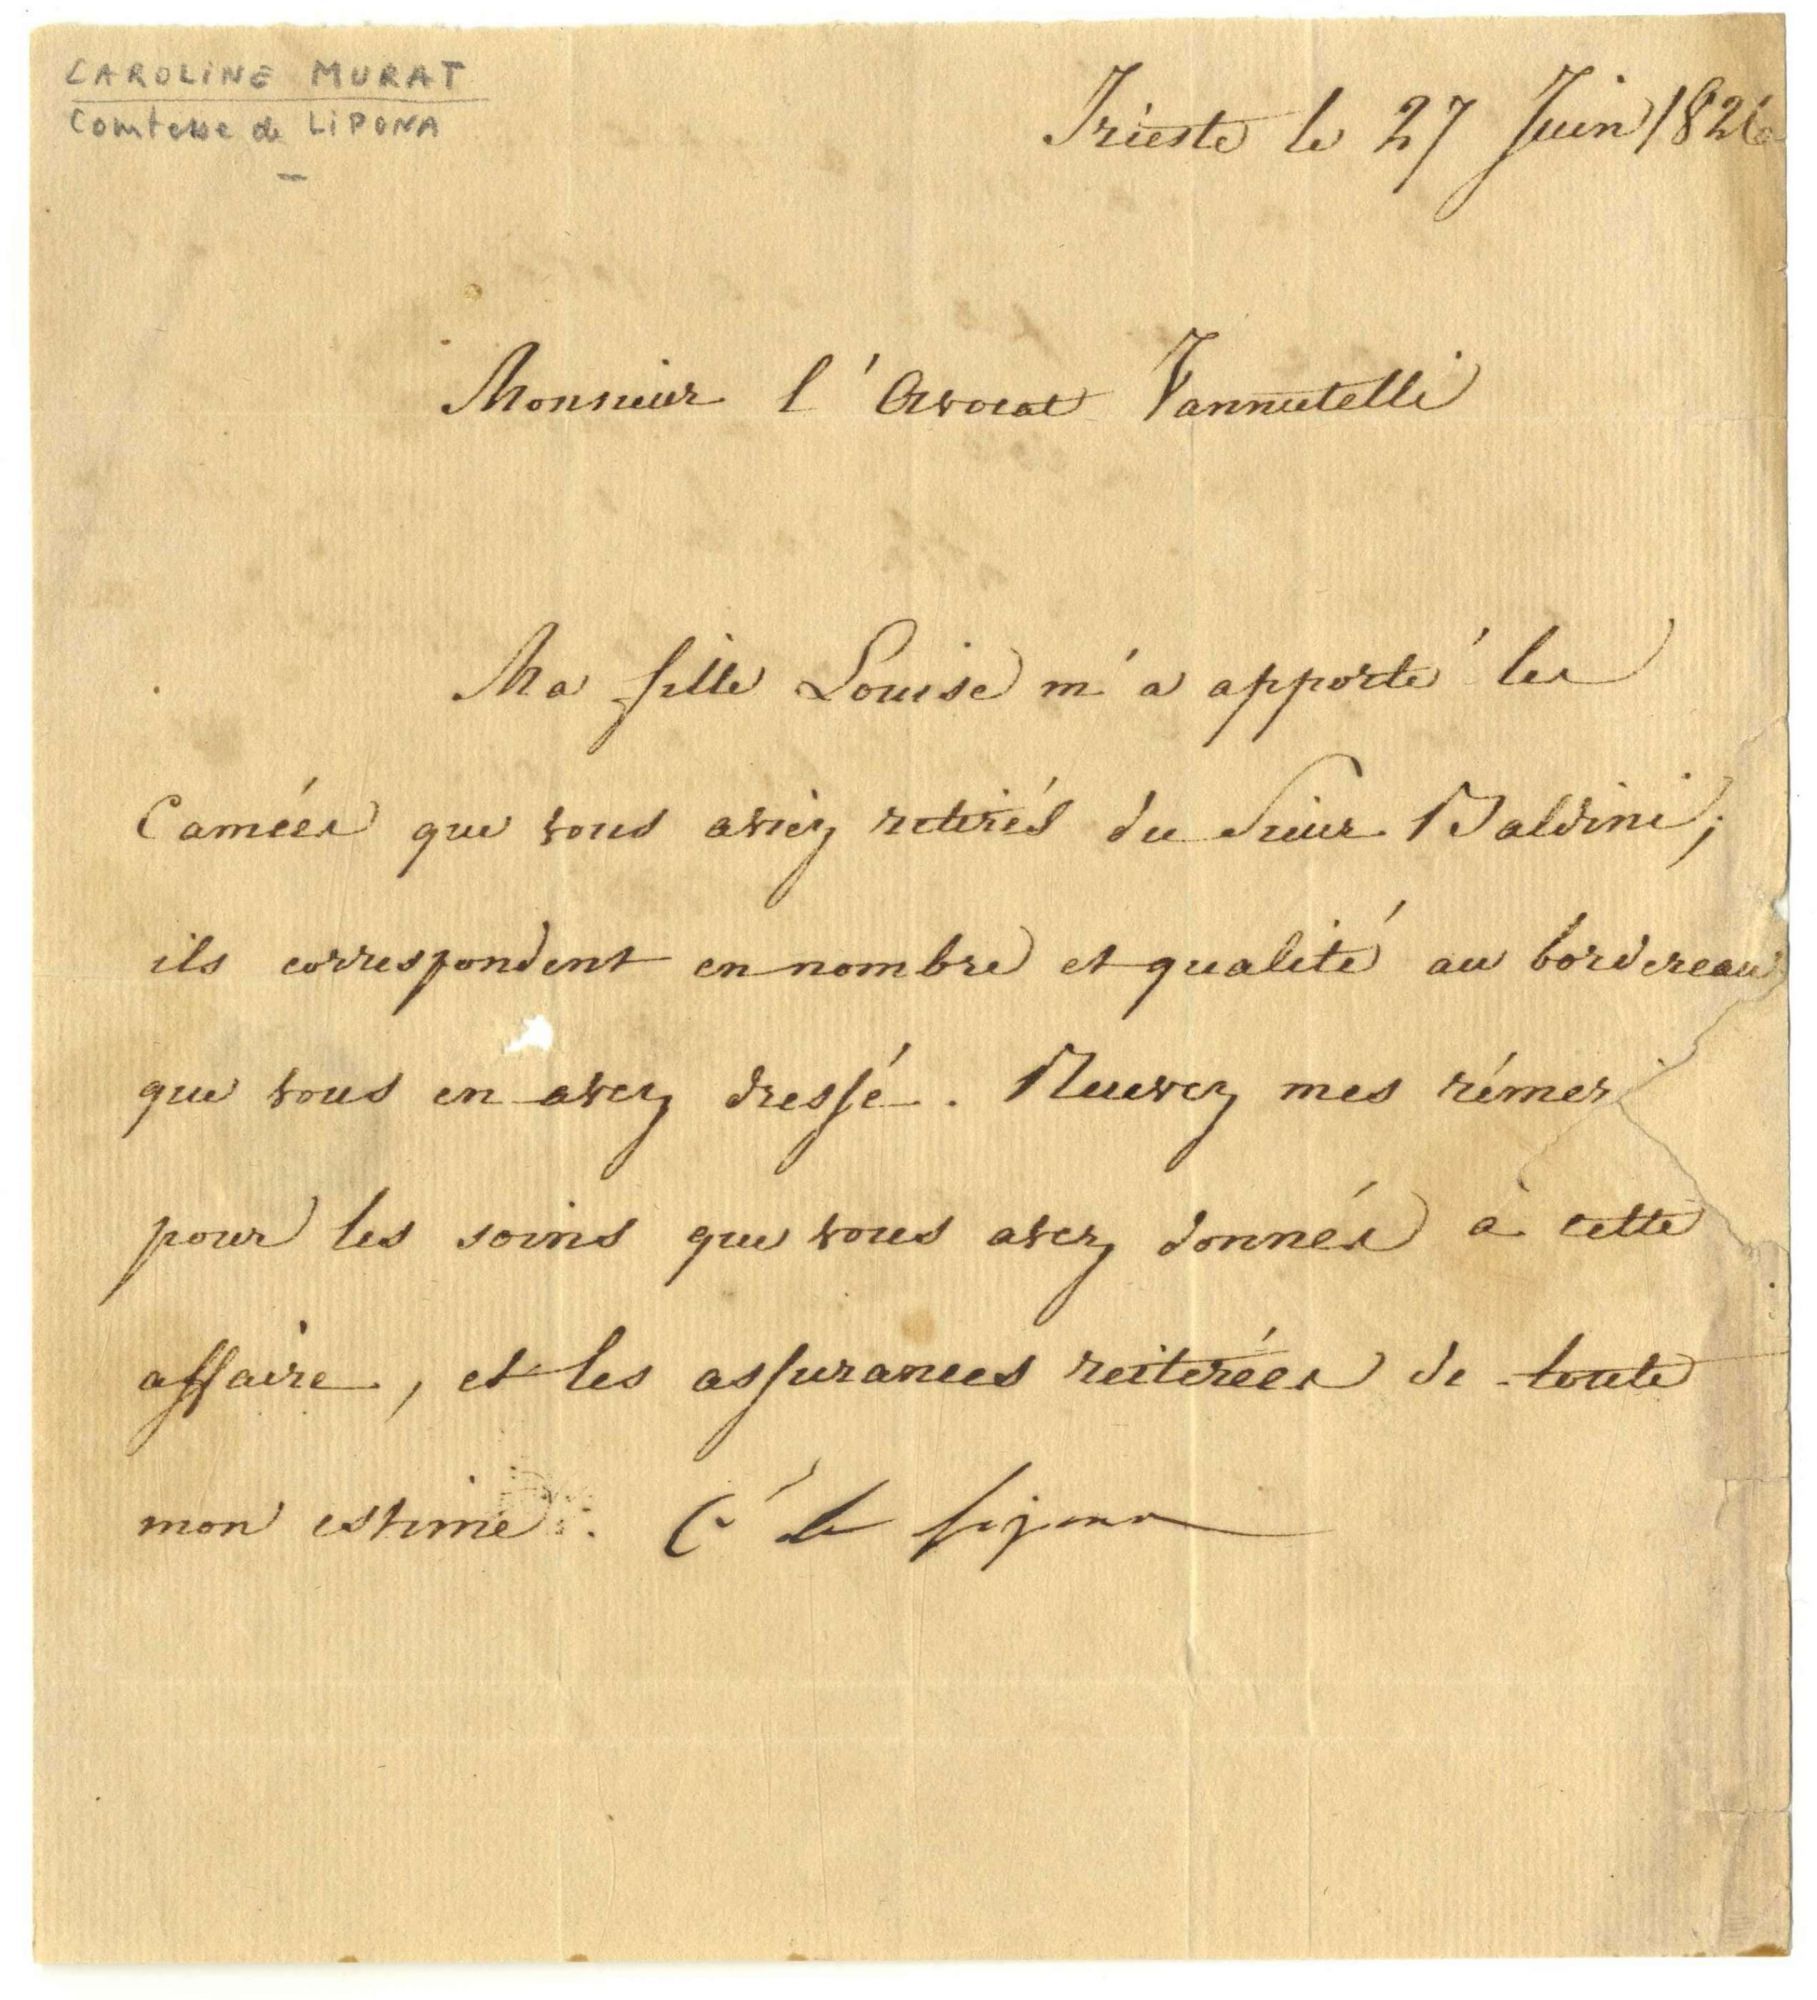 CAROLINE MURAT
Comtesse de LIPONA
Trieste le 27 Juin 1826
Monsieur l'Avocat Vannutelli
Ma fille Louise m'a apporté les
Camées que vous aviez retirés du Sieur Baldini;
ils correspondent en nombre et qualité au bordereau
que vous en avez dressé. Recevez mes rémer
pour les soins que vous avez donnés à cette
affaire, et les assurances reiterées de toute
mon estime. Csse de Lipona